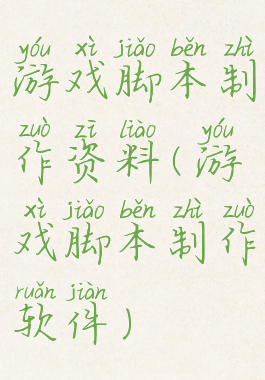 yóu xì jiǎo běn zhì
游戏脚本制
zuò zī liào yóu
作资料(游
xì jiǎo běn zhì zuò
戏脚本制作
ruǎn jiàn
软件)